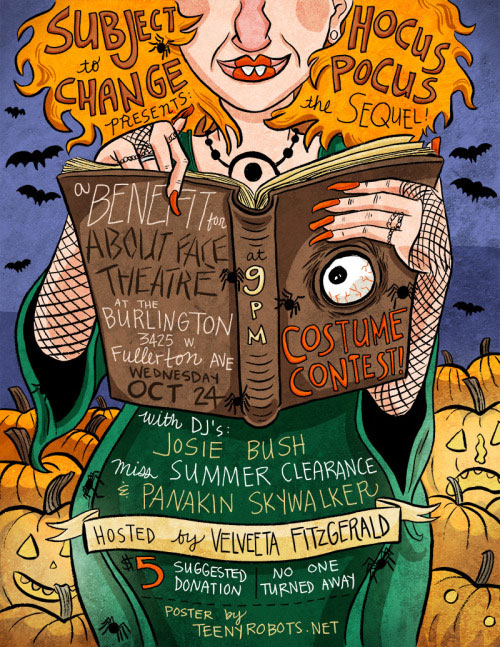 SUBJECT
to
CHANGE
PRESENTS:
HOCUS
POCUS
the SEQUEL!
a
BENEFIT for
ABOUT FACE
THEATRE
AT THE
BURLINGTON
3425 W
Fullerton AVE
WEDNESDAY
OCT 24
at
9
PM
COSTUME
CONTEST!
with DJ's:
JOSIE BUSH
miss SUMMER CLEARANCE
& PANAKIN SKYWALKER
HOSTED by VELVEETA FITZGERALD
$5 SUGGESTED DONATION
NO ONE TURNED AWAY
POSTER by
TEENYROBOTS.NET